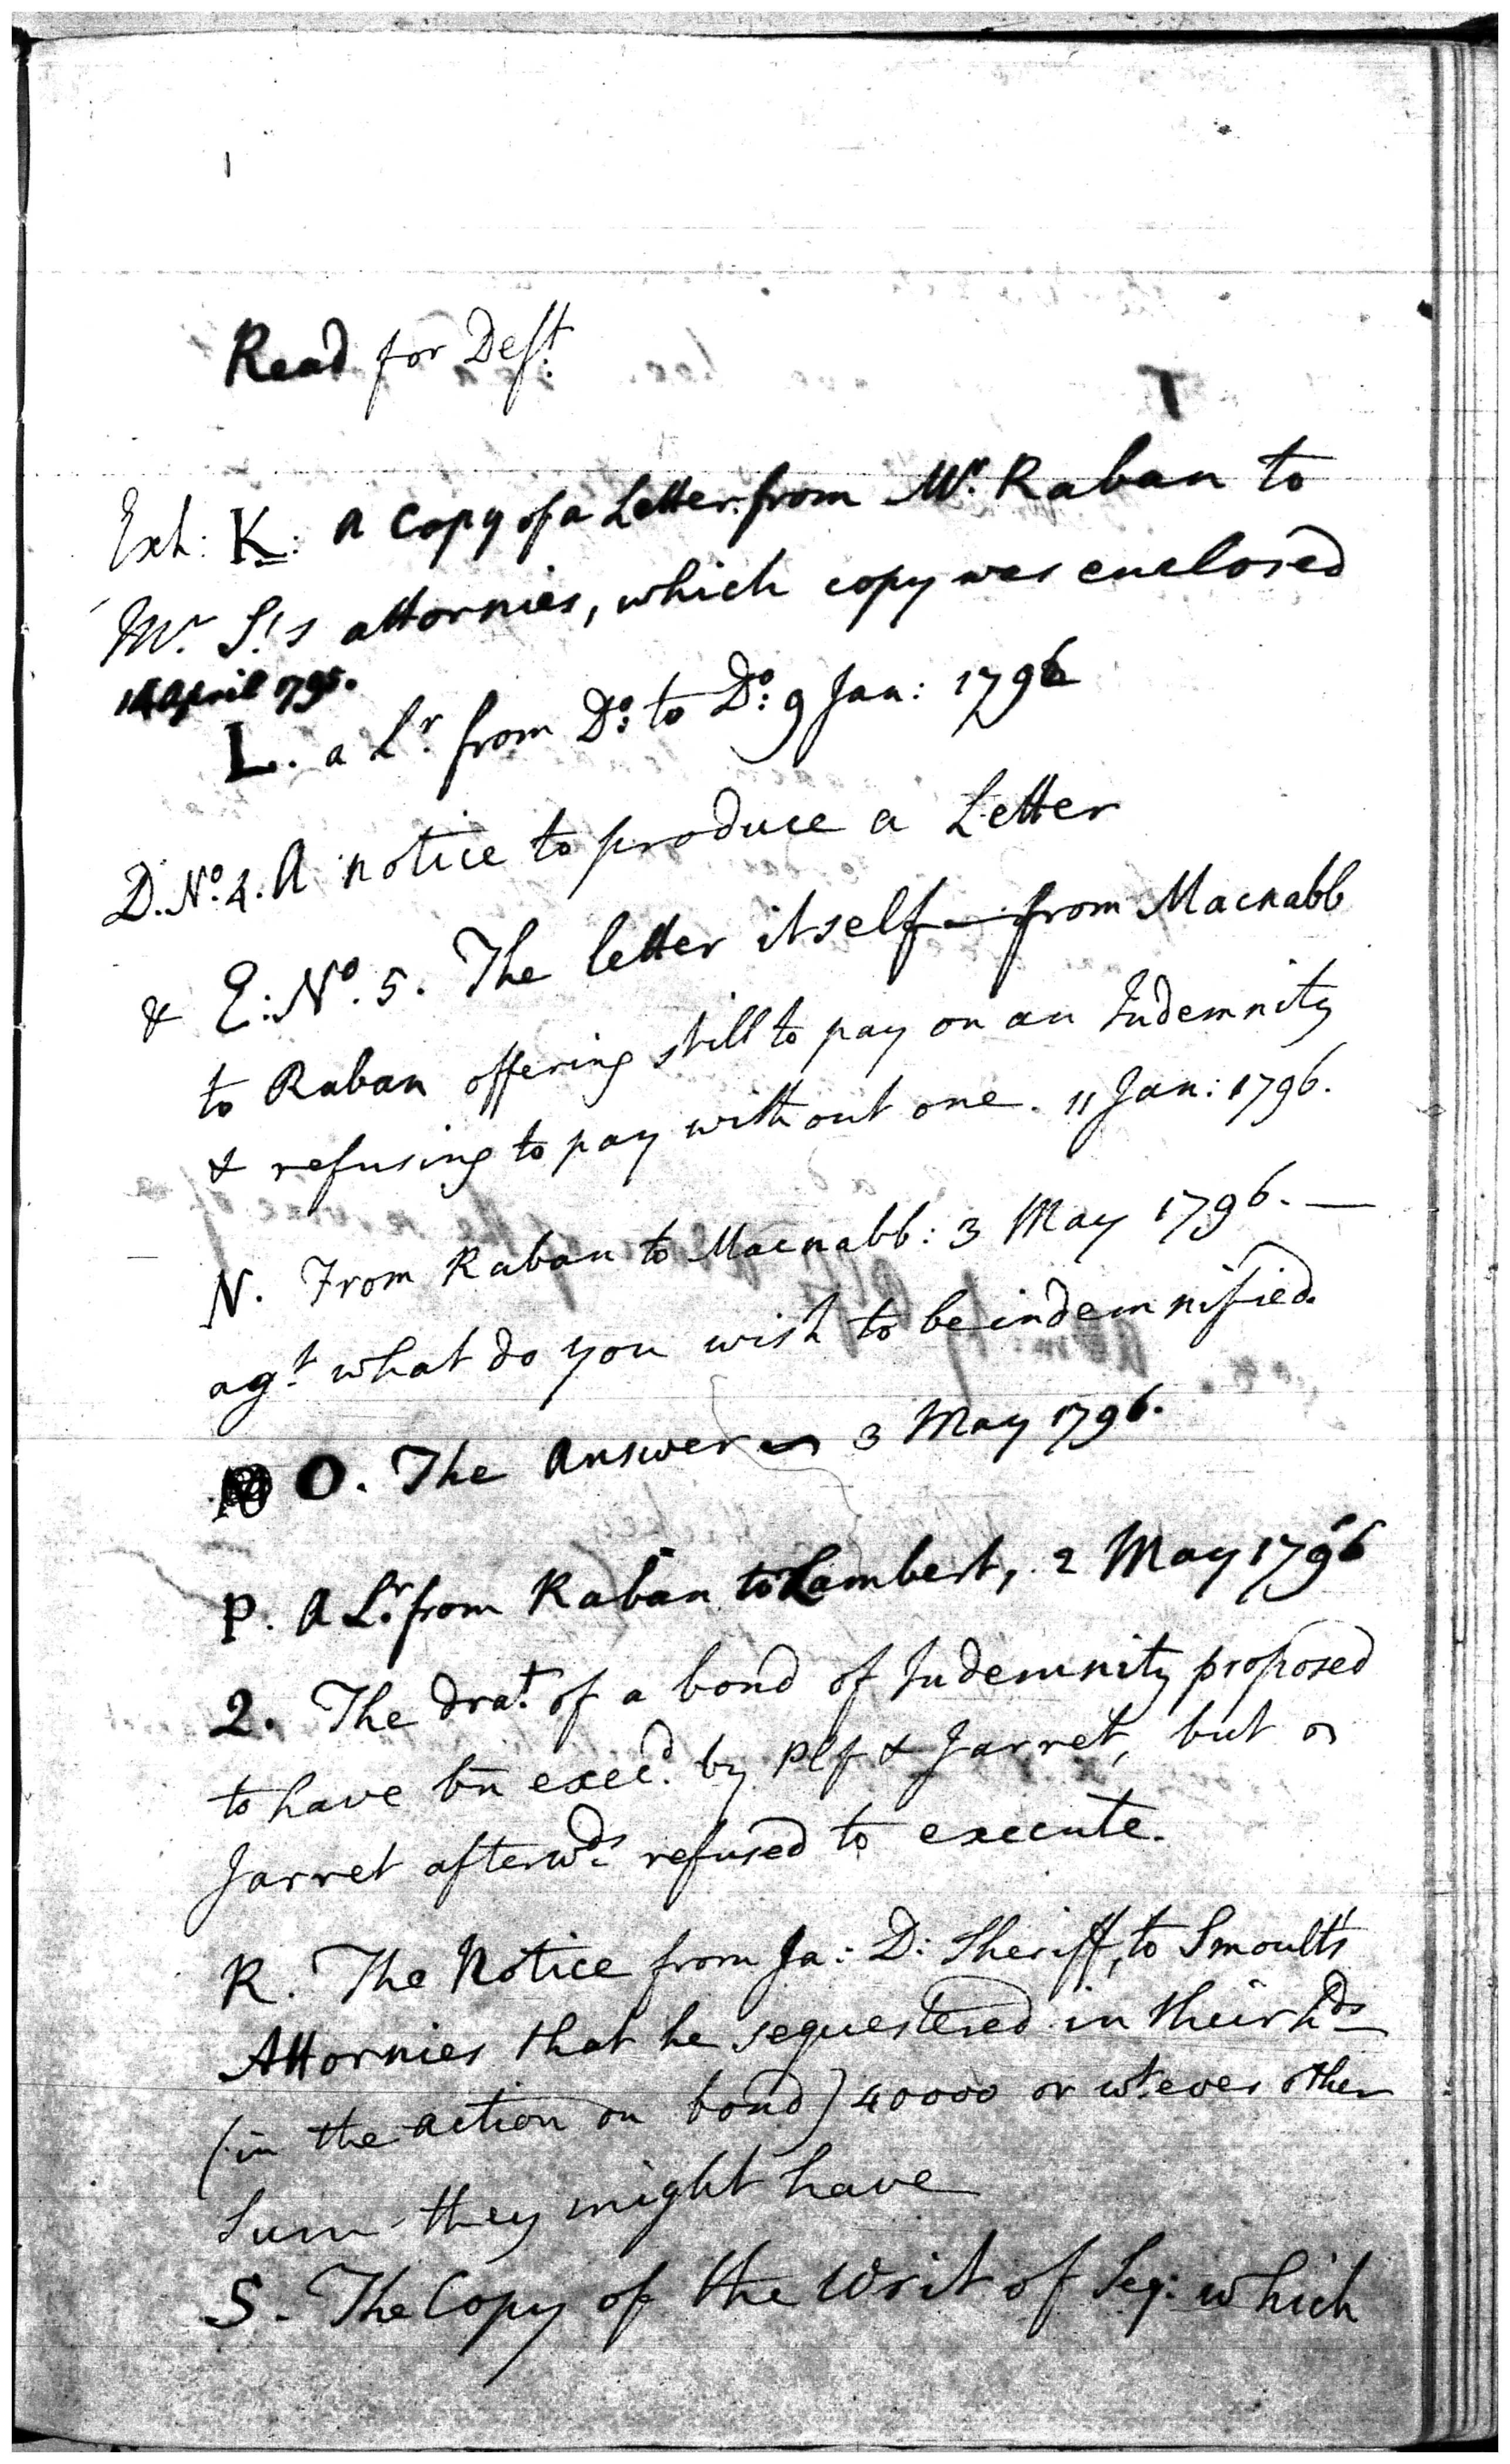 Read for Deft.
Exh: K: A Copy of a Letter from Mr. Raban to
Mr. S!s attornies, which copy was enclosed
14 April 1795.
L. a Lr. from Do: to Do: 9 Jan: 1796
D. No. 4. A notice to produce a Letter
& E: No. 5. The letter itself from Macnabb
to Raban offering still to pay on an Indemnity
& refusing to pay without one. 11 Jan: 1796.
N. From Raban to Macnabb: 3 May 1796. —
agt. what do you wish to be indemnified.
O. The Answer 3 May 1796.
P. A Lr. from Raban to Lambert, 2 May 1796
Q. The drat. of a bond of Indemnity proposed
to have bn execd. by Plf & Jarret, but
Jarret afterwds refused to execute.
R. The Notice from Ja: D: Sheriff, to Smoult's
Attornies that he sequestered in their hds
(in the action on bond) 40000 or wt.ever other
Sum they might have
S. The Copy of the Writ of Seq: which